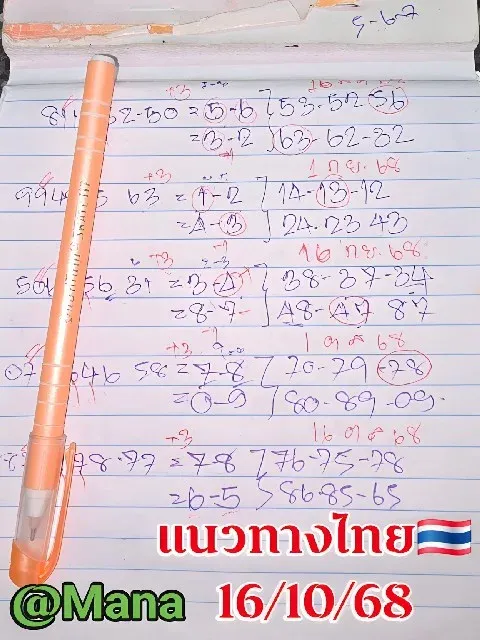 5-6-7
+3
52-50 = 5-6 53-52-56
= 3-2 63-62-32
+3 1 ก.ย. 68
994 63 = 1-2 14-13-12
= 4-3 24.23 43
+3 16 ก.ย. 68
56 31 = 3-4 38-37-34
= 8-7 48-47 87
+3 1 ต.ค 68
07 646 58 = 7-8 70-79-78
= 0-9 80-89-09
+3 16 ต.ค 68
78.77 = 7-8 76-75-78
= 6-5 86-85-65
แนวทางไทย🇹🇭
@Mana 16/10/68